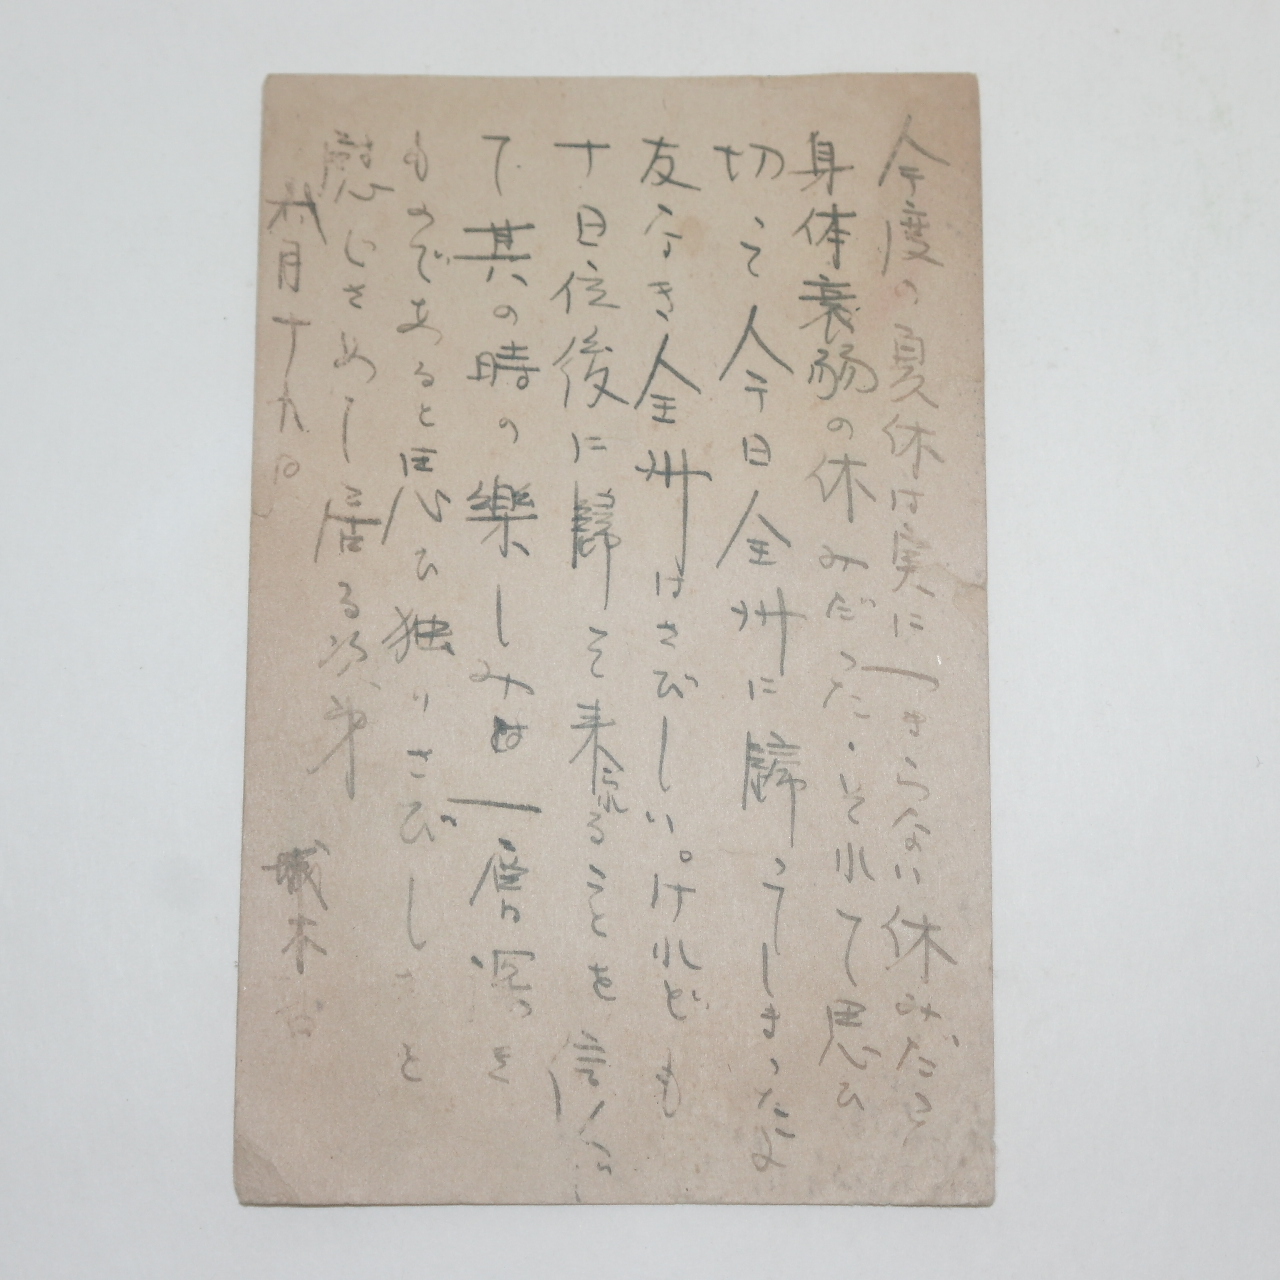 今度の夏休は実につまらない休みだった
身体衰弱の休みだった．それで思ひ
切って今日全州に歸ってしまったよ
友なき全州はさびしい。けれども
十日位後に歸って来られることを信じ
て其の時の樂しみは一層深き
ものであると思ひ独りさびしさを
慰じさめし居る次第
月十九日 城木